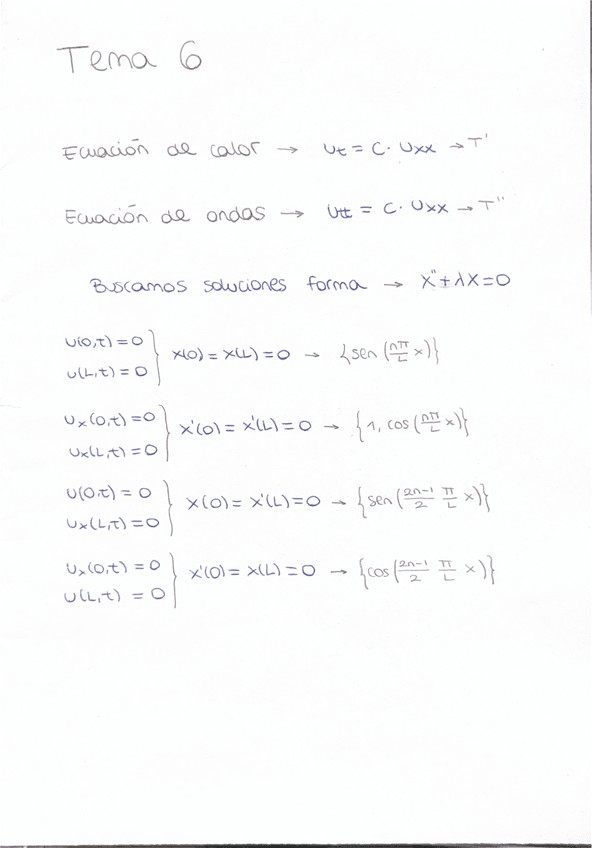 Tema 6
Ecuación de calor → Ut = C · Uxx → T'
Ecuación de ondas → Utt = C · Uxx → T''
Buscamos soluciones forma → X'' + λX = 0
U(0,t) = 0
U(L,t) = 0 } X(0) = X(L) = 0 → {sen (nπ/L x)}
Ux(0,t) = 0
Ux(L,t) = 0 } X'(0) = X'(L) = 0 → {1, cos (nπ/L x)}
U(0,t) = 0
Ux(L,t) = 0 } X(0) = X'(L) = 0 → {sen (2n-1/2 π/L x)}
Ux(0,t) = 0
U(L,t) = 0 } X'(0) = X(L) = 0 → {cos (2n-1/2 π/L x)}